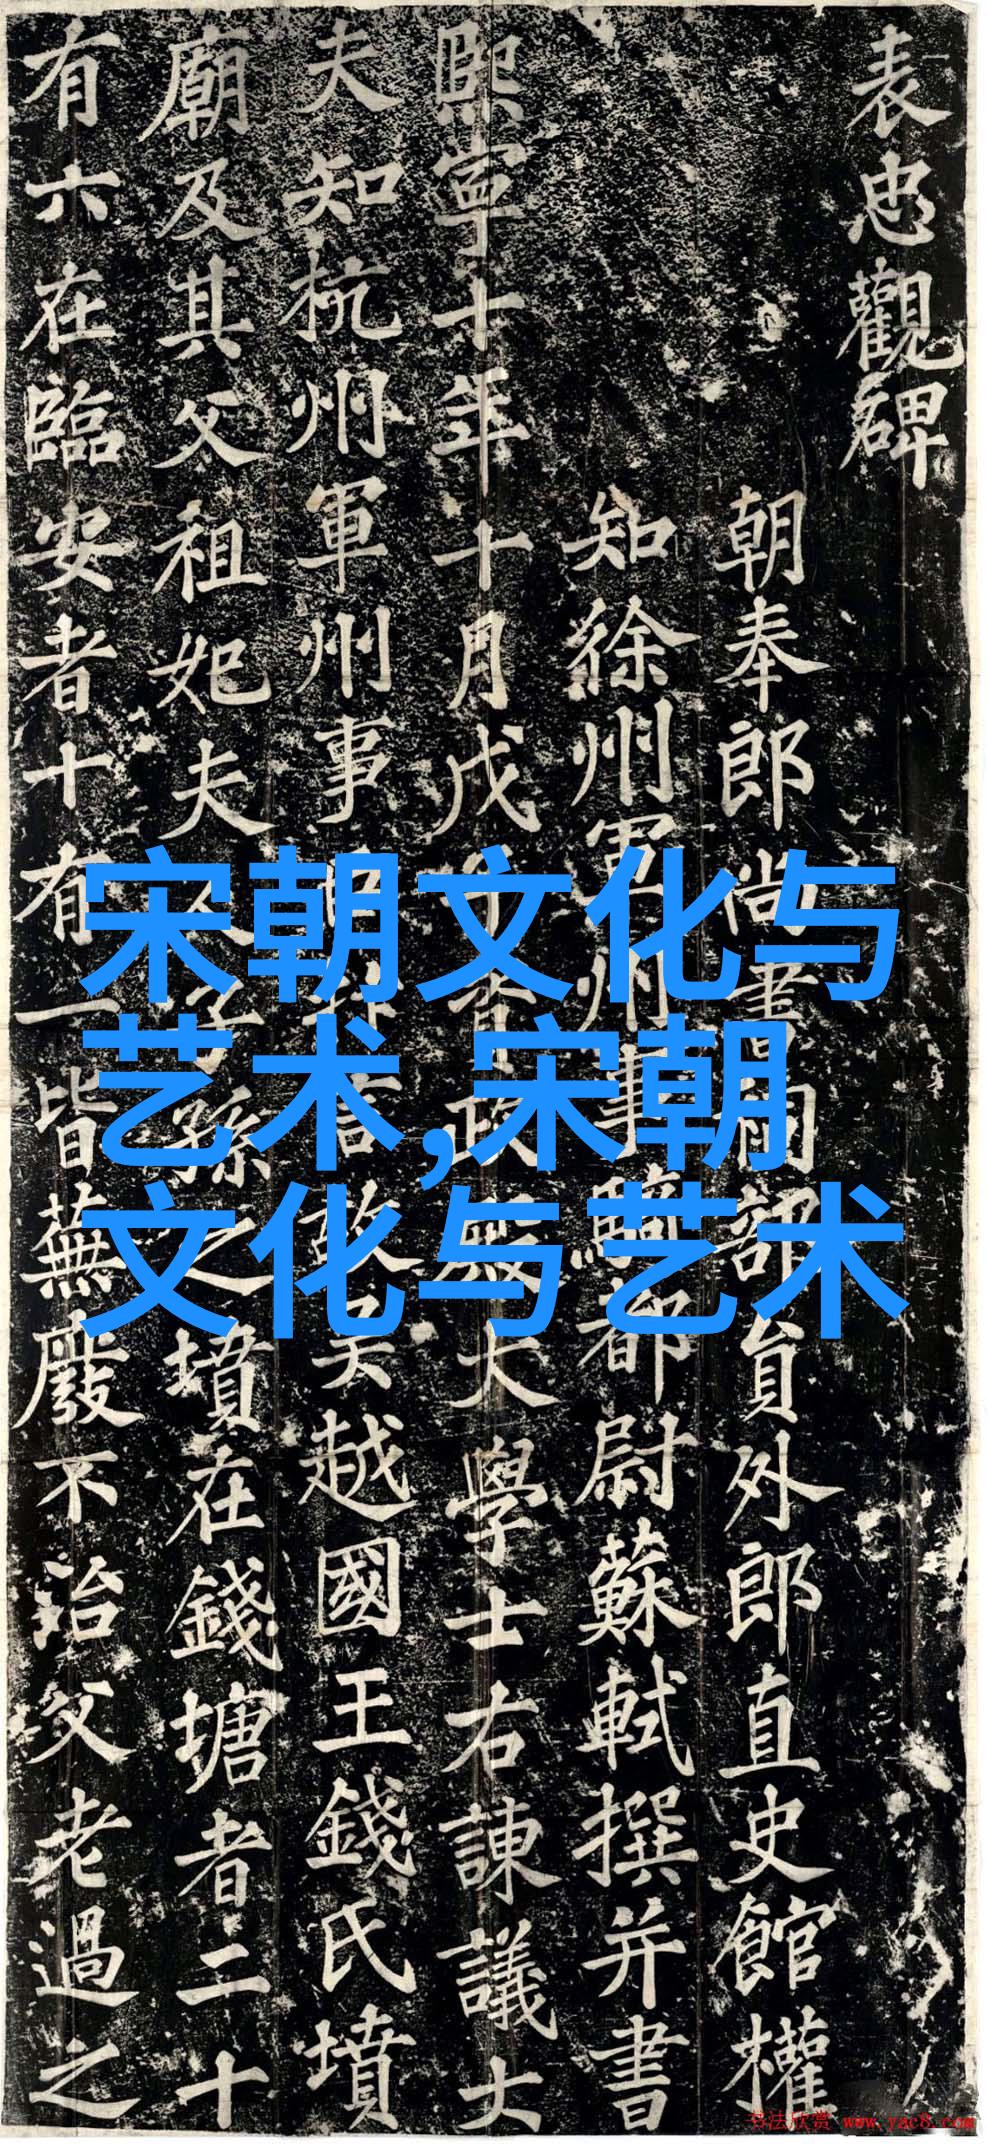 表忠觀碑
朝奉郎尚書祠部員外郎直史館權
知徐州軍州事騎都尉蘇軾撰并書
熙寧十年十月戊子資政殿大學士右諫議大
夫知杭州軍州事臣抃言故吳越國王錢氏墳
廟及其父祖妃夫人子孫之墳在錢塘者二十
有六在臨安者十有一皆蕪廢不治父老過之
宋朝文化与
艺术,宋朝
文化与艺术
书法欣赏 www.yac8.com